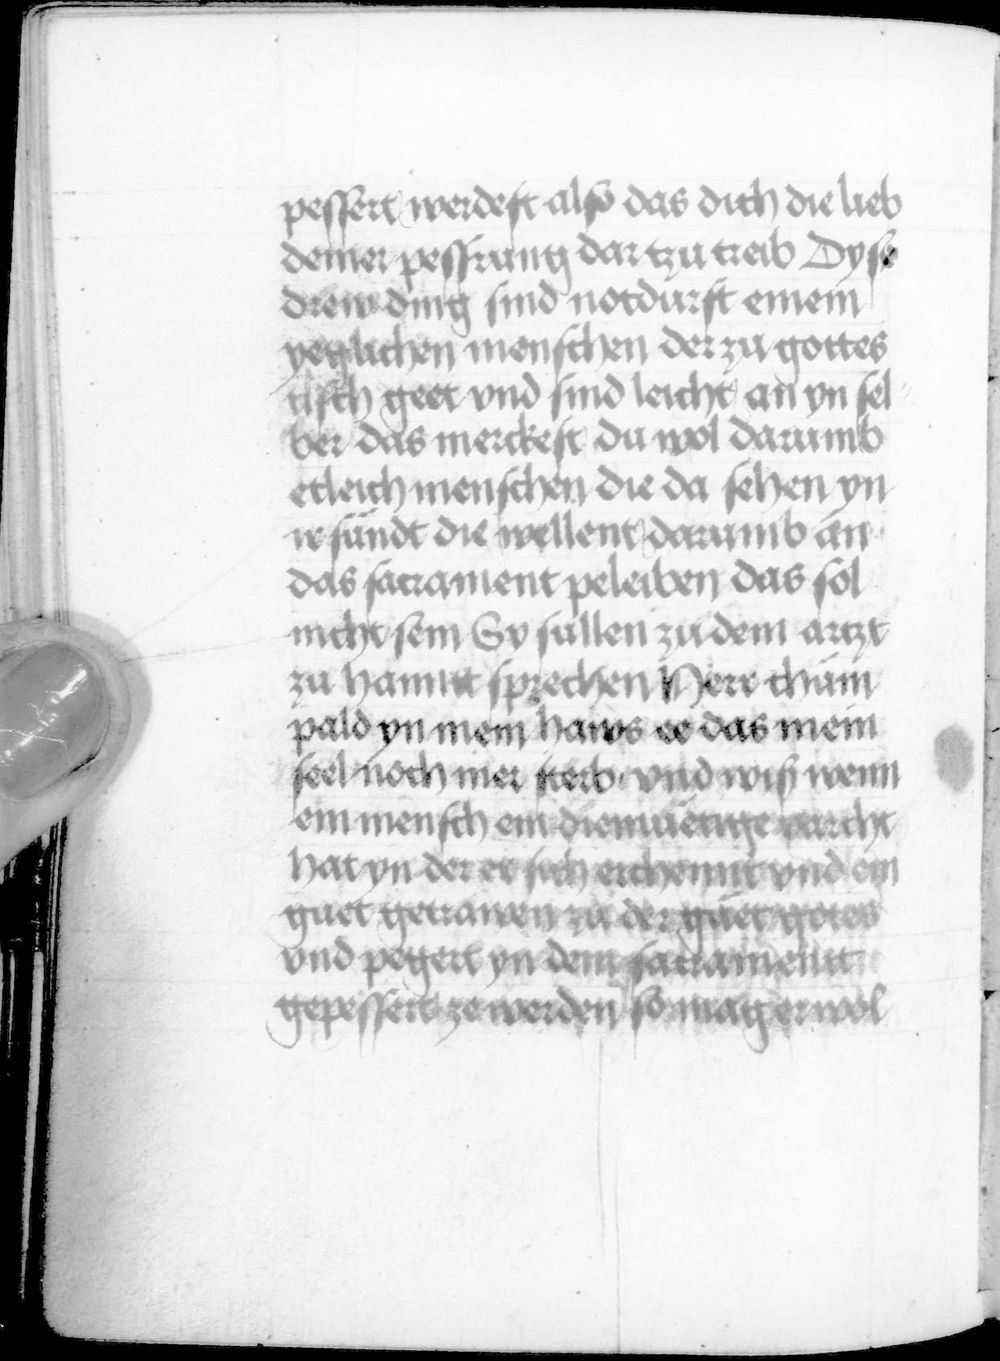 pessert werdest also das dich die lieb
deiner pessrung dar tzu treib Dyse
drew ding sind notdurft einem
yeglichen menschen der zu gottes
tisch geet vnd sind leicht an yn sel
ber das merckest du wol darumb
etleich menschen die da sehen yn
ir sündt die wellent darumb an
das sacrament peleiben das sol
nicht sein Sy sullen zu dem artzt
zu hannt sprechen Herr chüm
pald yn mein haws ee das mein
seel noch mer sterb vnd wiß wenn
ein mensch ein diemüetige varcht
hat yn der er sich erchennt vnd ein
guet getrawen zu der güet gotes
vnd pegert yn dem sacrament
gepessert ze werden so mag er wol